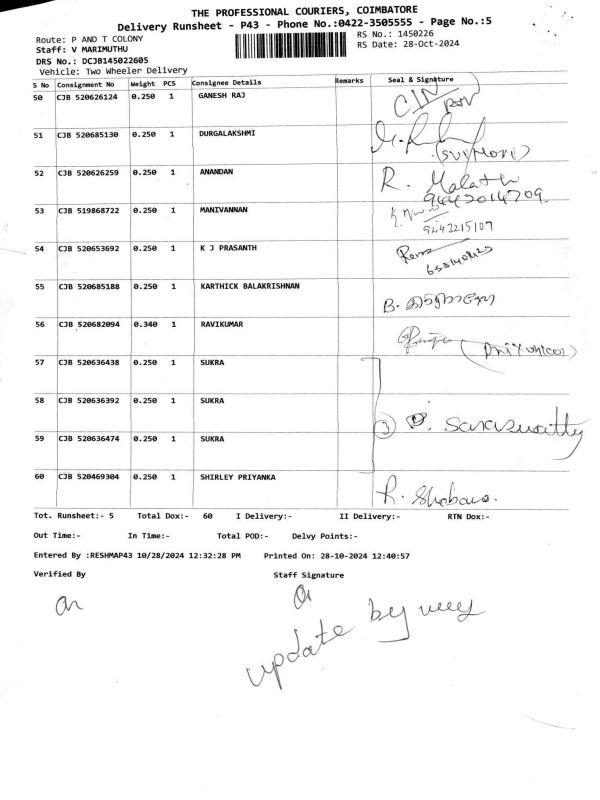 THE PROFESSIONAL COURIERS, COIMBATORE
Delivery Runsheet - P43 - Phone No.:0422-3505555 - Page No.:5
Route: P AND T COLONY RS No.: 1450226
Staff: V MARIMUTHU RS Date: 28-Oct-2024
DRS No.: DCJB145022605
Vehicle: Two Wheeler Delivery
S No Consignment No Weight PCS Consignee Details Remarks Seal & Signature
50 CJB 520626124 0.250 1 GANESH RAJ
51 CJB 520685130 0.250 1 DURGALAKSHMI
52 CJB 520626259 0.250 1 ANANDAN R. Malathi
53 CJB 519868722 0.250 1 MANIVANNAN 9443215107
54 CJB 520653692 0.250 1 K J PRASANTH
55 CJB 520685188 0.250 1 KARTHICK BALAKRISHNAN
56 CJB 520682094 0.340 1 RAVIKUMAR
57 CJB 520636438 0.250 1 SUKRA
58 CJB 520636392 0.250 1 SUKRA
59 CJB 520636474 0.250 1 SUKRA
60 CJB 520469304 0.250 1 SHIRLEY PRIYANKA R. Shobana.
Tot. Runsheet:- 5 Total Dox:- 60 I Delivery:- II Delivery:- RTN Dox:-
Out Time:- In Time:- Total POD:- Delvy Points:-
Entered By :RESHMAP43 10/28/2024 12:32:28 PM Printed On: 28-10-2024 12:40:57
Verified By Staff Signature
update by